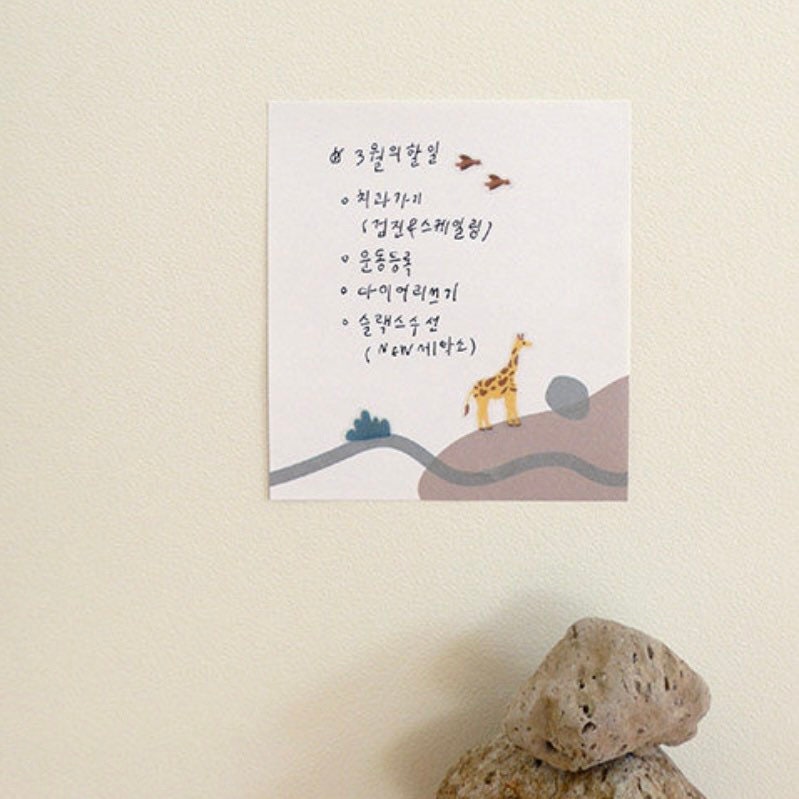 ☆ 3월의할일
◦ 치과가기
(검진&스케일링)
◦ 운동등록
◦ 다이어리쓰기
◦ 슬랙스수선
(NEW세탁소)